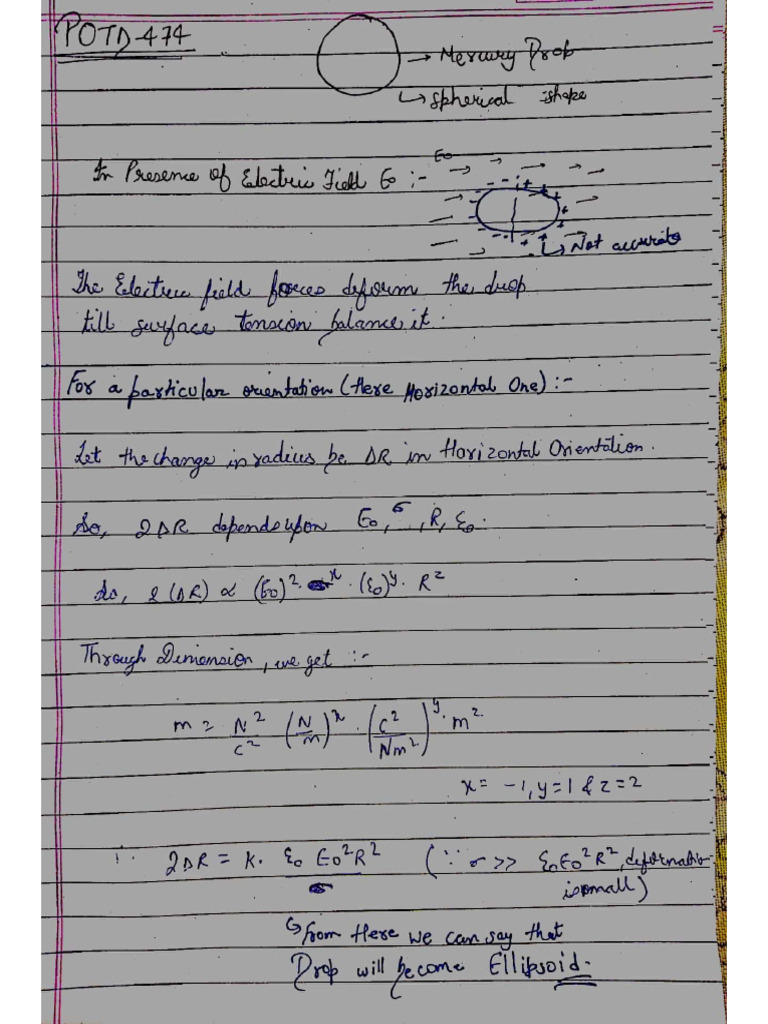 POTD-474
→ Mercury Drop
↳ Spherical shape
In Presence of Electric Field E0 :-
E0
↳ Not accurate
The Electric field forces deform the drop
till surface tension balance it.
For a particular orientation (Here Horizontal One) :-
Let the change in radius be ΔR in Horizontal Orientation.
So, 2ΔR depends upon E0, σ, R, ε0.
So, 2(ΔR) ∝ (E0)². σ^x . (ε0)^y . R^z
Through Dimension, we get :-
m = N²/C² (N/m)^x . (C²/Nm²)^y . m^z
x = -1, y = 1 & z = 2
∴ 2ΔR = K. ε0 E0² R² / σ (∵ σ >> ε0E0²R², deformation
is small)
↳ from Here we can say that
Drop will become Ellipsoid.